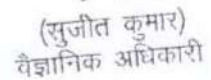 (सुजीत कुमार)
वैज्ञानिक अधिकारी